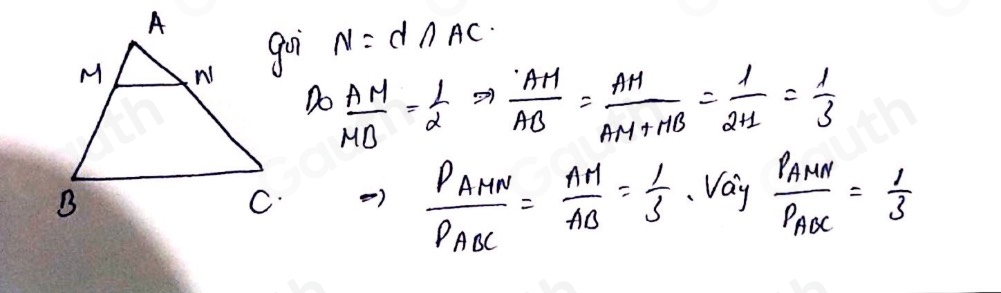 A
M N
B C.
gọi N = d ∩ AC.
Do AM/MB = 1/2 => AM/AB = AM/(AM+MB) = 1/(2+1) = 1/3
=> P_AMN/P_ABC = AM/AB = 1/3. Vậy P_AMN/P_ABC = 1/3
Gauth